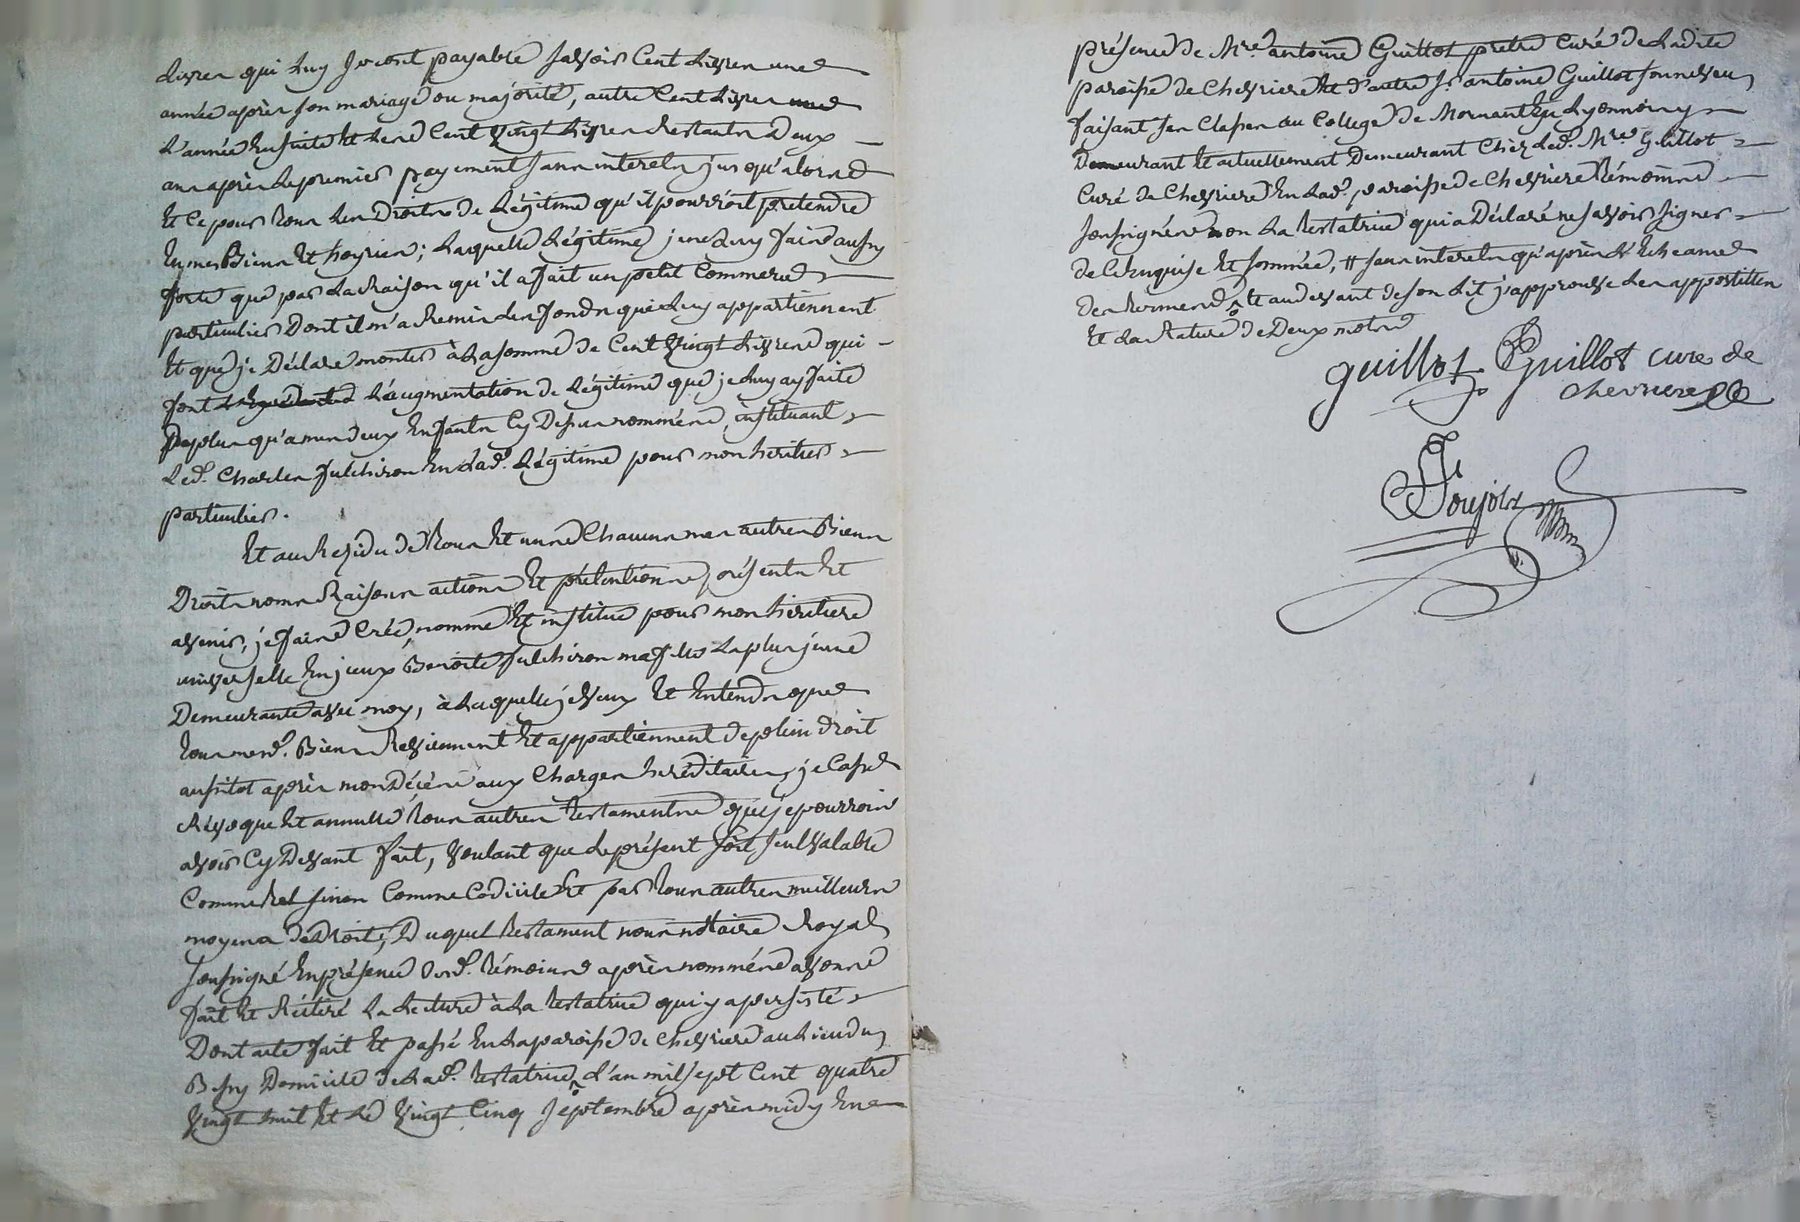 Livres qui luy seront payable sçavoir Cent Livres une
année après son mariage ou majorité, autre Cent Livres
L'année Ensuite Et Lesd Cent Vingt Livres Restants Deux
ans après Le premier payement sans interets jusqu'alors
Et Ce pour tous Les Droits de Légitime qu'il pourroit pretendre
En mes Biens Et hoyries; Laquelle Légitime je ne Luy fais aussy
forte que par La Raison qu'il a fait un petit Commerce
particulier Dont il m'a Remis Les fonds qui Luy appartiennent
Et que je Déclare monter à La somme de Cent Vingt Livres qui
font L'augmentation de Légitime que je Luy ay faite
De plus qu'a mes deux Enfants Cy Dessus nommés, instituant
Led. Charles fulchiron En Lad. Légitime pour mon heritier
particulier.
Et au Residu de Tous Et uns Chacuns mes autres Biens
Droits noms Raisons actions Et prétentions présents Et
avenir, je fais Crée, nomme Et institue pour mon heritiere
universelle En jceux Benoite fulchiron ma fille La plus jeune
Demeurante avec moy, à Laquelle je Veux Et Entends que
tous mesd. Biens Reviennent Et appartiennent de plein droit
aussitot après mon Décés aux Charges hereditaires, je Casse
Révoque Et annulle tous autres testaments que je pourrois
avoir Cy Devant fait, Voulant que Le présent soit seul Valable
Comme tel sinon Comme Codicile Et par tous autres meilleurs
moyens de Droit; Duquel testament nous notaire Royal
soussigné En présence Desd. témoins après nommés avons
fait Et Réiteré La Lecture à La testatrice qui y a persisté
Dont acte fait Et passé En La paroisse de Chevriere au Lieu du
Bessy Domicile de Lad. testatrice L'an mil sept Cent quatre
Vingt huit Et Le Vingt Cinq septembre après midy En
présence de Mre. antoine Guillot pretre Curé de Ladite
paroisse de Chevriere Et d'autre Sr. antoine Guillot son neveu
faisant ses Classes au College de Mornant En Lyonnois
Demeurant Et actuellement Demeurant Chéz Led. Mre. Guillot
Curé de Chevriere En Lad. paroisse de Chevriere témoins
soussignés non La testatrice qui a Déclaré ne sçavoir signer
de Ce Enquise Et sommée, # sans interets qu'après L'Echeance
des termes Et au devant de son Lit j'approuve Les appostilles
Et La Rature de Deux mots
guillot Guillot cure de
chevriere
Poujols